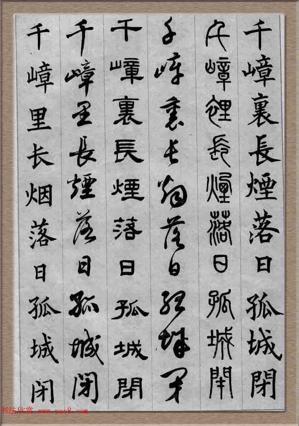 千嶂裏長煙落日孤城閉
千嶂裡長煙落日孤城閉
千嶂裏長煙落日孤城閉
千嶂裏長煙落日孤城閉
千嶂里長煙落日孤城閉
千嶂里长烟落日孤城闭